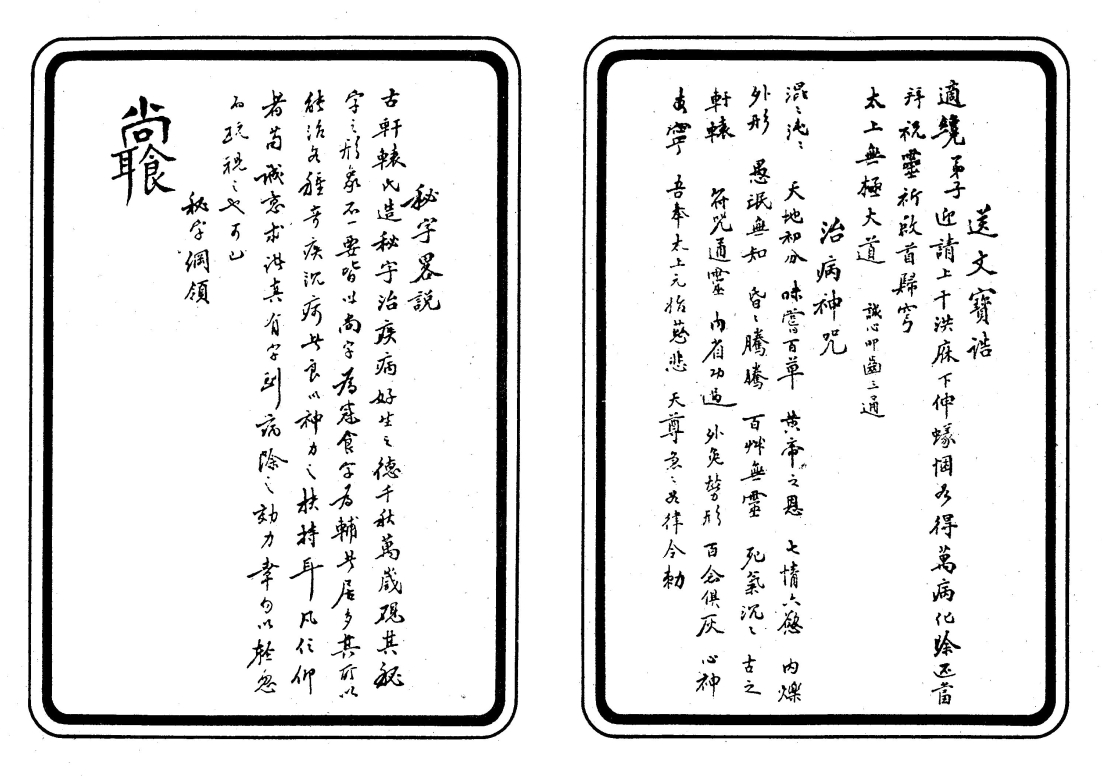 送文寶誥
適纔弟子迎請上干洪庥下伸蟻悃及得萬病化除還當
拜祝靈祈啟首歸穹
太上無極大道 誠心叩齒三通
治病神咒
混混沌沌 天地初分 味嘗百草 黃帝之恩 七情六慾 內爍
外形 愚泯無知 昏昏騰騰 百艸無靈 死氣沉沉 古之
軒轅 符咒通靈 內省功過 外免勞形 百念俱灰 心神
安寧 吾奉太上元始慈悲 天尊急急如律令勅
秘字畧説
古軒轅氏造秘字治疾病好生之德千秋萬歲觀其秘
字之形象不一要皆以尚字為意食字為輔者居多其所以
能治各種奇疾沉疴者良以神力之扶持耳凡信仰
者苟誠意求法真有字到病除之効力幸勿以輕忽
而玩視之也可已
秘字綱領
尚耳食